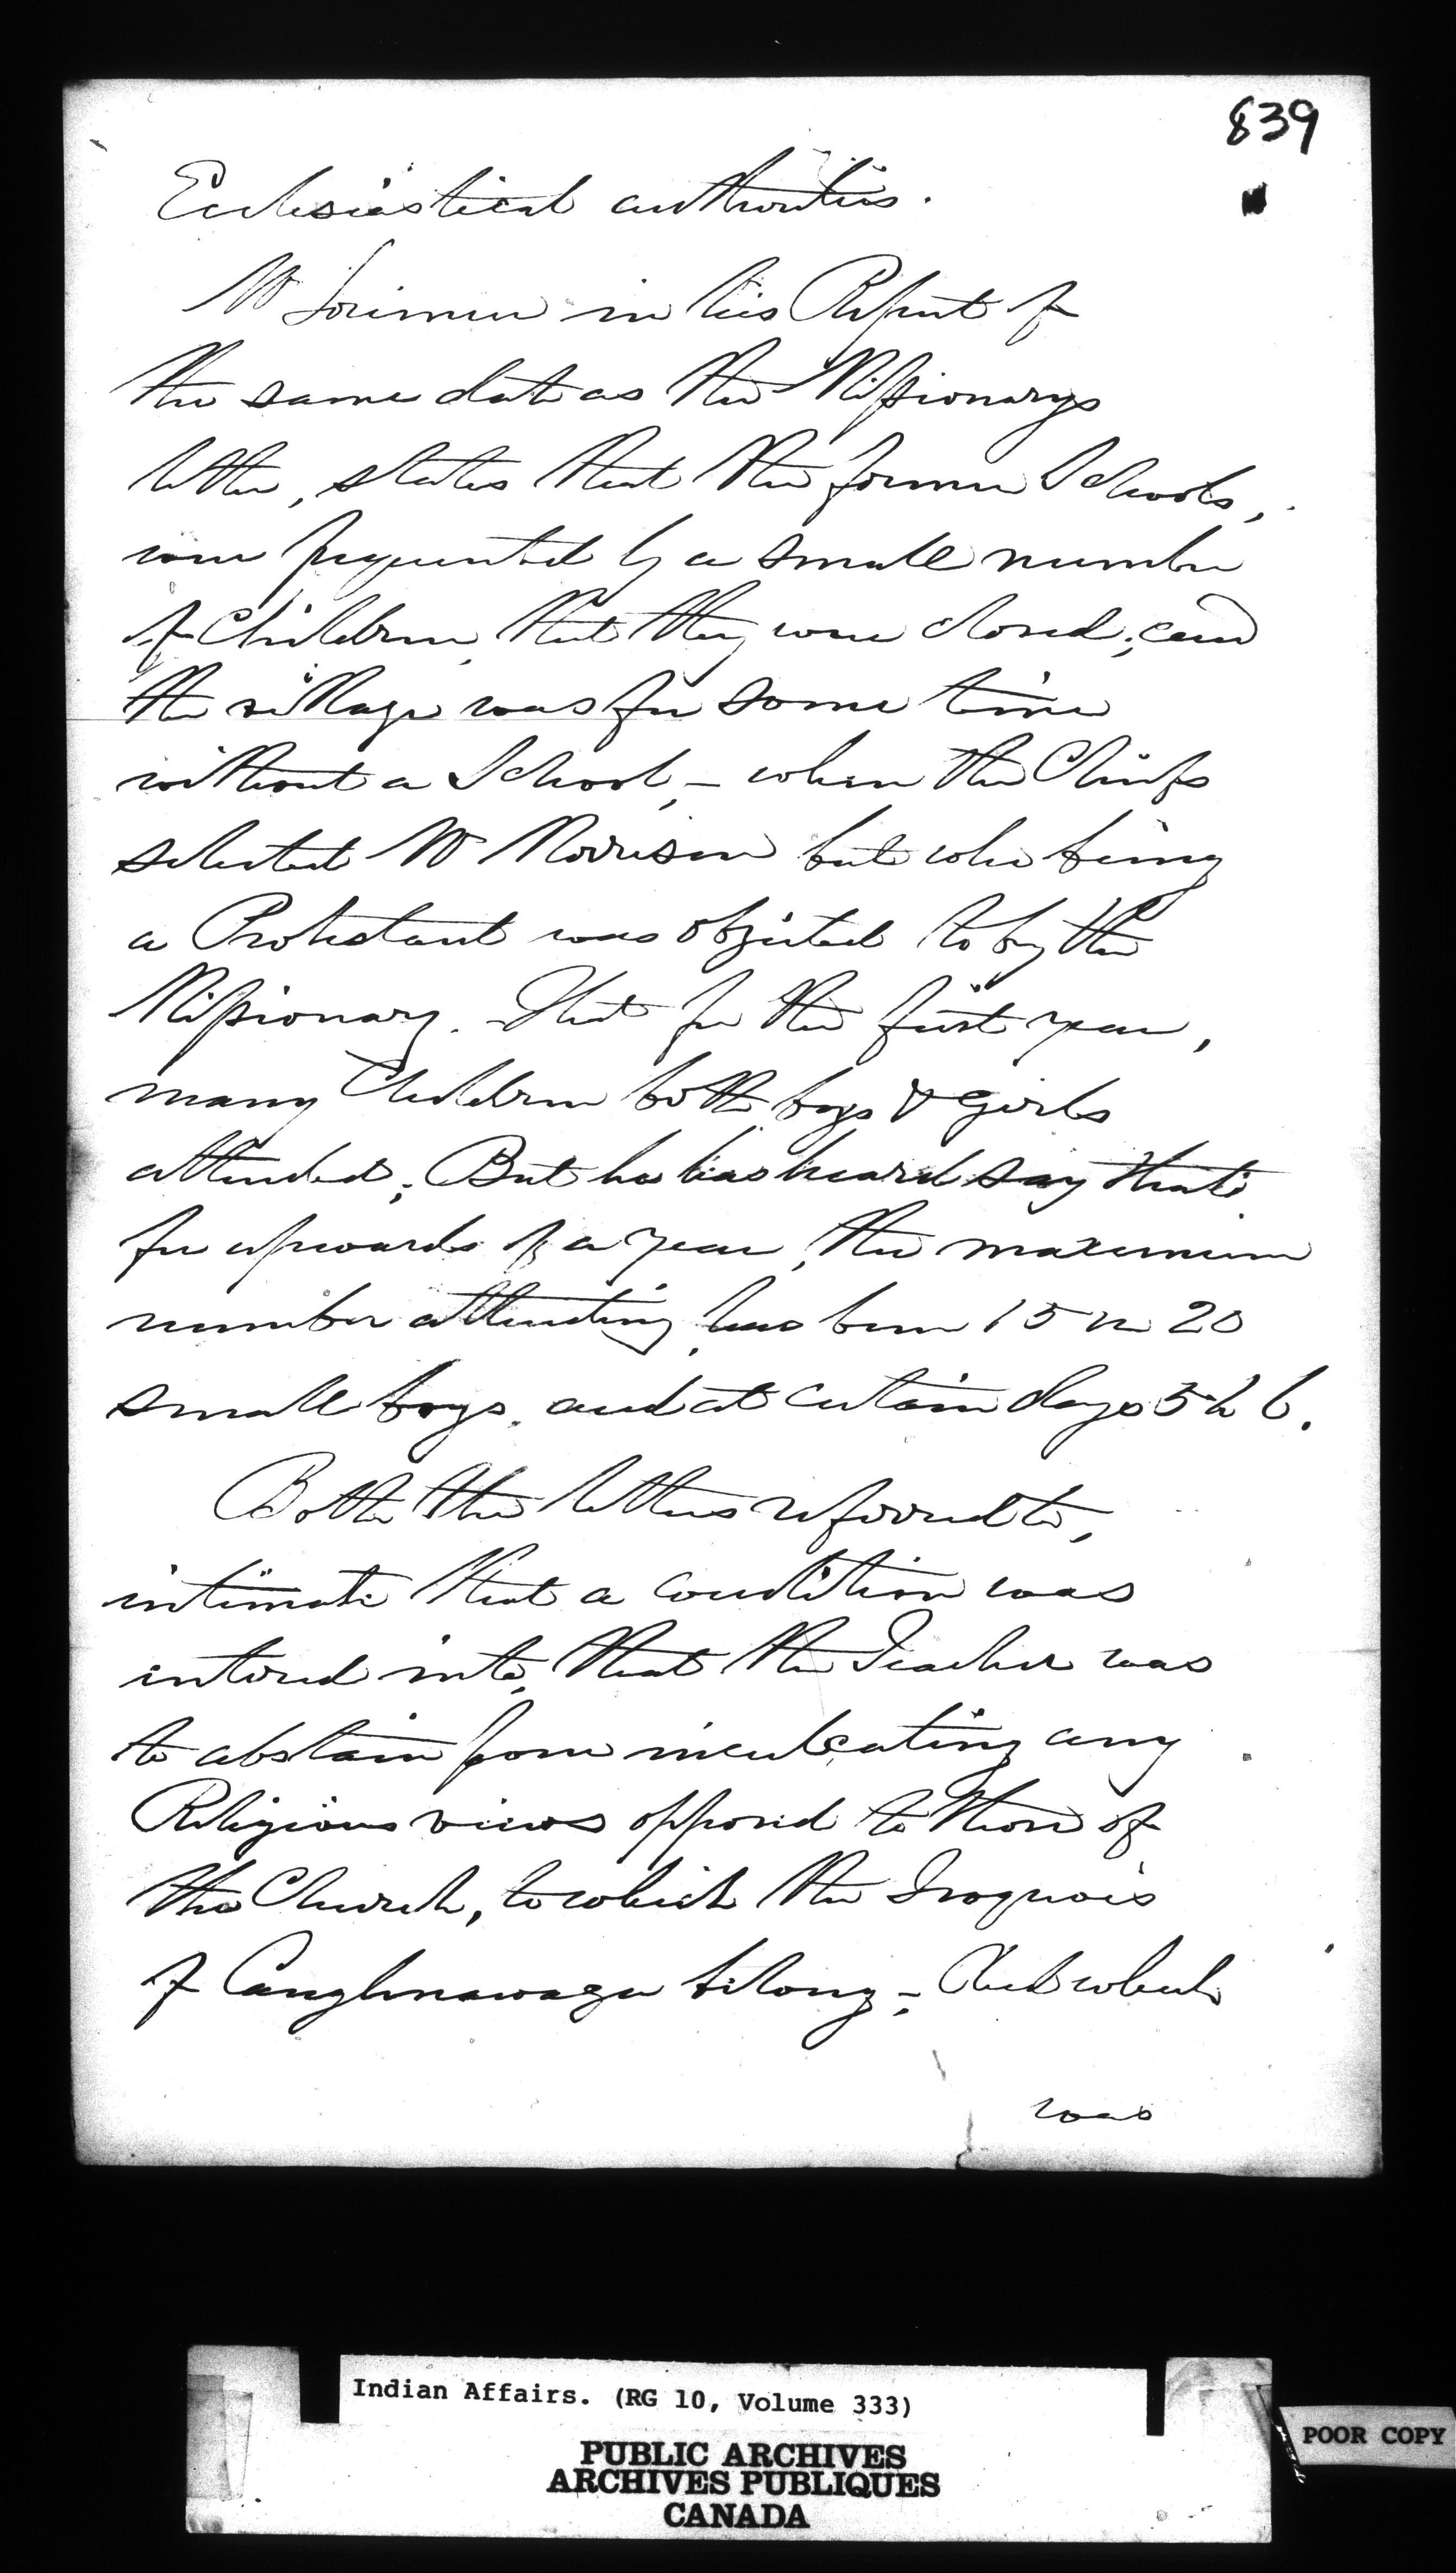 839
Ecclesiastical authorities.
Mr Lorimier in his Report of
the same date as the Missionarys
letter, states that the former Schools,
were frequented by a small number
of Children, that they were closed; and
the village was for some time
without a School, – when the Chiefs
selected Mr Morrison but who being
a Protestant was objected to by the
Missionary. – That for the first year,
many Children both boys & girls
attended; But he has heard say that
for upwards of a year, the maximum
number attending, has been 15 or 20
small boys, and at certain days 5 to 6.
Both the letters referred to,
intimate that a condition was
entered into, that the Teacher was
to abstain from inculcating any
Religious views opposed to those of
the Church, to which the Iroquois
of Caughnawaga belong; – And which
was
Indian Affairs. (RG 10, Volume 333)
PUBLIC ARCHIVES
ARCHIVES PUBLIQUES
CANADA
POOR COPY